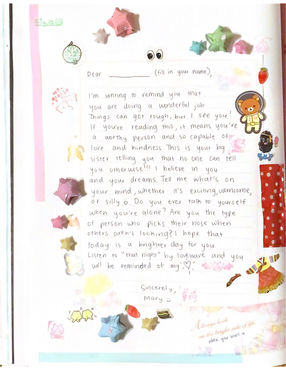 Dear __________ (fill in your name),
I'm writing to remind you that
you are doing a wonderful job
Things can get rough, but I see you!
If you're reading this, it means you're
a worthy person and so capable of
love and kindness. This is your big
sister telling you that no one can tell
you otherwise!!! I believe in you
and your dreams. Tell me what's on
your mind, whether it's exciting, worrisome,
or silly. Do you ever talk to yourself
when you're alone? Are you the type
of person who picks their nose when
others aren't looking? I hope that
today is a brighter day for you.
Listen to "that night" by
and you
will be reminded of my ♡.
Sincerely,
Mary
Always look
on the bright side of life